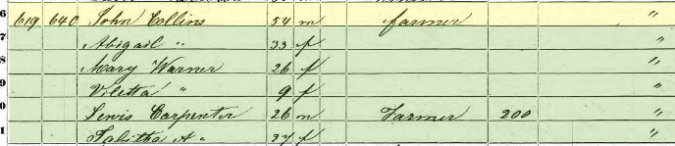 6 619 640 John Collins 54 m farmer "
7 Abigail " 33 f "
8 Mary Warner 26 f "
9 Viletta " 9 f "
0 Lewis Carpenter 26 m Farmer 200 "
1 Tabitha A " 27 f "